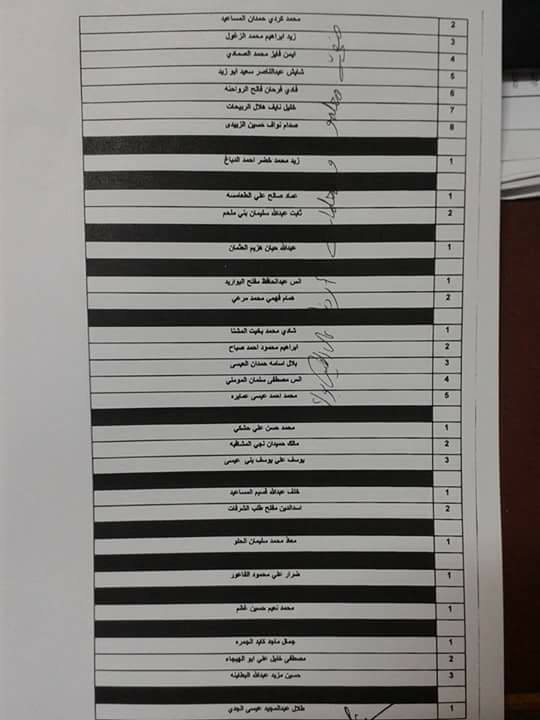 2 محمد كردي حمدان المساعيد
3 زيد ابراهيم محمد الزغول
4 ايمن فايز محمد الصمادي
5 شايش عبدالناصر سعيد ابو زيد
6 فادي فرحان فالح الرواحنه
7 خليل نايف هلال الربيحات
8 صدام نواف حسين الزبيدى
1 زيد محمد خضر احمد الدباغ
1 عماد صالح علي الطعامسه
2 ثابت عبدالله سليمان بني ملحم
1 عبدالله حيان هزيم العثمان
1 انس عبدالحافظ مفلح البواريد
2 همام فهمي محمد مرعي
1 شادي محمد بخيت المشنا
2 ابراهيم محمود احمد صباح
3 بلال اسامه حمدان العيسى
4 انس مصطفى سلمان المومني
5 محمد احمد عيسى عمايره
1 محمد حسن علي حشكي
2 مالك حميدان نجي المشاقبه
3 يوسف علي يوسف بني عيسى
1 خلف عبدالله قسيم المساعيد
2 اسدالدين مفلح طلب الشرفات
1 معاذ محمد سليمان الحلو
1 ضرار علي محمود الفاعور
1 محمد نعيم حسين غنم
1 جمال ماجد خالد الجمره
2 مصطفى خليل علي ابو الهيجاء
3 حسين مزيد عبدالله البطاينه
1 طلال عبدالمجيد عيسى الجدي